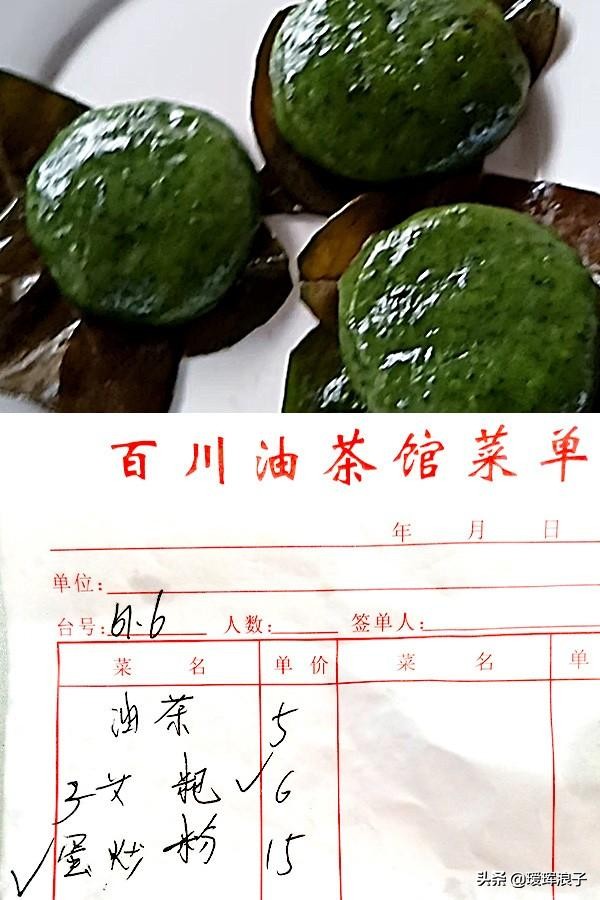 百川油茶馆菜单
年 月 日
单位:
台号: 6 人数: 签单人:
菜 名 单 价 菜 名 单
油茶 5
艾粑 ✓ 6
✓ 蛋炒粉 15
头条 @瑷珲浪子